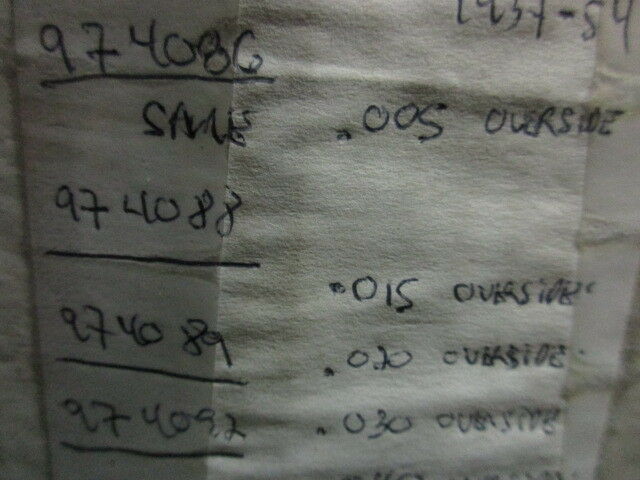 1937-54
974086
SAME .005 OVERSIDE
974088
.015 OVERSIDE
974089
.020 OVERSIDE
974092 .030 OVERSIDE